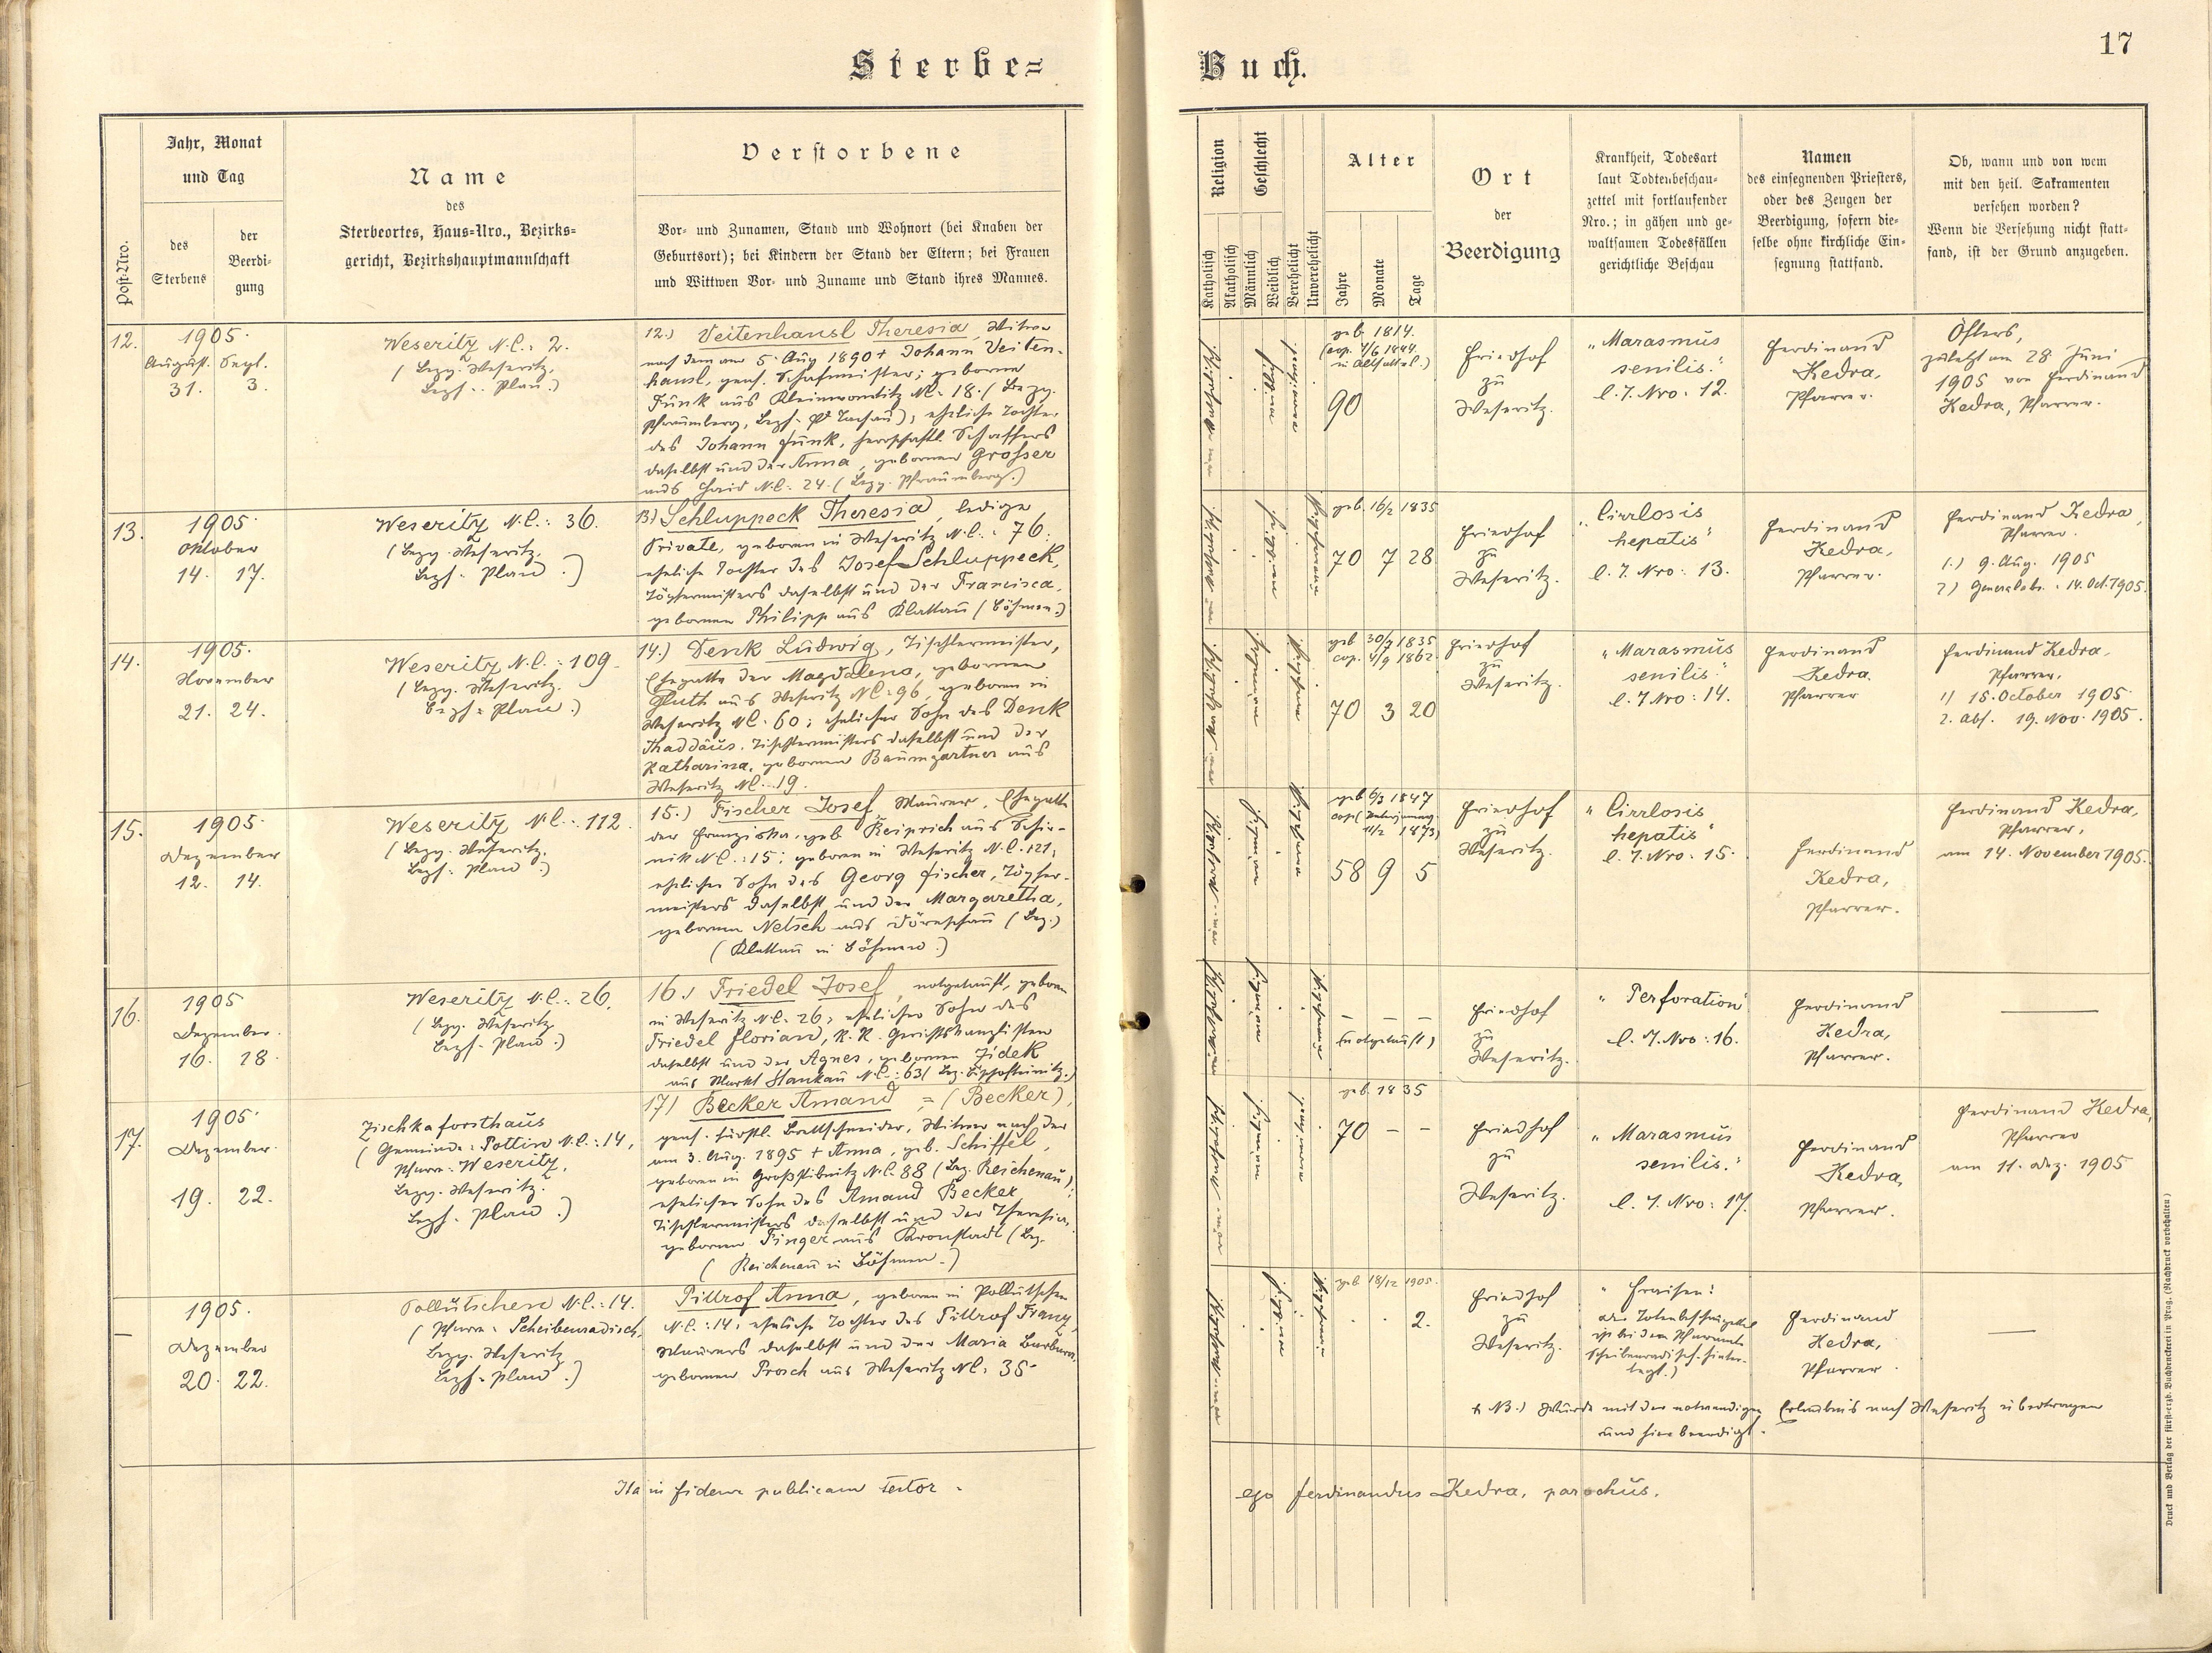 17
Sterbe=
Buch.
Post-Nro.
Jahr, Monat
und Tag
des
Sterbens
der
Beerdi-
gung
Name
des
Sterbeortes, Haus-Nro., Bezirks-
gericht, Bezirkshauptmannschaft
Verstorbene
Vor- und Zunamen, Stand und Wohnort (bei Knaben der
Geburtsort); bei Kindern der Stand der Eltern; bei Frauen
und Wittwen Vor- und Zuname und Stand ihres Mannes.
Religion
Katholisch
Akatholisch
Geschlecht
Männlich
Weiblich
Verehelicht
Unverehelicht
Alter
Jahre
Monate
Tage
Ort
der
Beerdigung
Krankheit, Todesart
laut Todtenbeschau-
zettel mit fortlaufender
Nro.; in gähen und ge-
waltsamen Todesfällen
gerichtliche Beschau
Namen
des einsegnenden Priesters,
oder des Zeugen der
Beerdigung, sofern die-
selbe ohne kirchliche Ein-
segnung stattfand.
Ob, wann und von wem
mit den heil. Sakramenten
versehen worden?
Wenn die Versehung nicht statt-
fand, ist der Grund anzugeben.
12.
1905.
August. Sept.
31. 3.
Weseritz N.C. 2.
(Bezg. Weseritz,
Bezh. Plan.)
12.) Veitenhansl Theresia, Witwe
nach dem am 5. Aug 1890 + Johann Veiten-
hansl, gew. Schafmeister; geborne
Funk aus Kleinwonetitz NC. 18. (Bezg.
Pfraumberg, Bezh. Tachau), eheliche Tochter
des Johann Funk, herrschaftl. Schaffers
daselbst und der Anna, gebornen Grosser
aus Haid N.C. 24. (Bezg. Pfraumberg.)
geb. 1814.
(cop. 4/6 1844.
90
Friedhof
zu
Weseritz.
"Marasmus
senilis."
l. T. Nro. 12.
Ferdinand
Kedra,
Pfarrer.
Öfters,
zuletzt am 28. Juni
1905 von Ferdinand
Kedra, Pfarrer.
13.
1905.
Oktober
14. 17.
Weseritz N.C.: 36.
(Bezg. Weseritz,
Bezh. Plan.)
13) Schluppeck Theresia, ledige
Private, geboren in Weseritz N.C.: 76;
eheliche Tochter des Josef Schluppeck,
Töpfermeisters daselbst und der Francisca,
gebornen Philipp aus Klattau (Böhmen.)
geb. 16/2 1835
70 7 28
Friedhof
zu
Weseritz.
"Cirrlosis
hepatis"
l. T. Nro: 13.
Ferdinand
Kedra,
Pfarrer.
Ferdinand Kedra,
Pfarrer.
1.) 9. Aug. 1905
2) Generalabs.: 14. Oct. 1905.
14.
1905.
November
21. 24.
Weseritz N.C.: 109.
(Bezg. Weseritz.
Bezh. Plan.)
14.) Denk Ludwig, Tischlermeister,
Ehegatte der Magdalena, gebornen
Gluth aus Weseritz NC: 96, geboren in
Weseritz NC. 60; ehelicher Sohn des Denk
Thaddäus, Tischlermeisters daselbst und der
Katharina, gebornen Baumgartner aus
Weseritz NC. 19.
geb 30/7 1835
cop. 4/9 1862.
70 3 20
Friedhof
zu
Weseritz.
"Marasmus
senilis."
l. T Nro: 14.
Ferdinand
Kedra.
Pfarrer
Ferdinand Kedra,
Pfarrer,
1) 15. October 1905.
2. Abs. 19. Nov. 1905.
15.
1905.
Dezember
12. 14.
Weseritz N.C.: 112.
(Bezg. Weseritz,
Bezh: Plan.)
15.) Fischer Josef, Maurer, Ehegatte
der Franziska, geb. Reiprich aus Schir-
nik N.C.: 15; geboren in Weseritz N.C. 121;
ehelicher Sohn des Georg Fischer, Töpfer-
meisters daselbst und der Margaretha,
gebornen Netsch aus (Bez.)
(Klattau in Böhmen.)
geb 6/3 1847
11/2 1873)
58 9 5
Friedhof
zu
Weseritz.
"Cirrlosis
hepatis"
l. T. Nro: 15.
Ferdinand
Kedra,
Pfarrer.
Ferdinand Kedra,
Pfarrer,
am 14. November 1905.
16.
1905
Dezember.
16. 18.
Weseritz N.C.: 26.
(Bezg. Weseritz
Bezh. Plan.)
16.) Friedel Josef, notgetauft, geboren
in Weseritz N.C. 26; ehelicher Sohn des
Friedel Florian, K.K. Gerichtskanzlisten
daselbst und der Agnes, gebornen Jidek
aus Markt Stankau N.C.: 63 (Bez. Bischofteinitz.)
– – –
(notgetauft)
Friedhof
zu
Weseritz.
"Perforation"
l. T. Nro: 16.
Ferdinand
Kedra,
Pfarrer.
17.
1905.
Dezember.
19. 22.
Zischkaforsthaus
(Gemeinde: Pottin N.C.: 14,
Pfarre: Weseritz,
Bezg. Weseritz.
Bezh. Plan.)
17) Becker Amand = (Becker),
gew. fürstl. Brettschneider, Witwer nach der
am 3. Aug. 1895 + Anna, geb. Schiffel,
geboren in Großstibnitz N.C. 88 (Bez. Reichenau);
ehelicher Sohn des Amand Becker
Tischlermeisters daselbst und der Theresia,
gebornen Finger aus Kronstadt (Bez.
(Reichenau in Böhmen.)
geb. 1835
70 – –
Friedhof
zu
Weseritz.
"Marasmus
senilis."
l. T. Nro: 17.
Ferdinand
Kedra,
Pfarrer.
Ferdinand Kedra,
Pfarrer
am 11. Dez. 1905
–
1905.
Dezember
20. 22.
Pollutschen N.C.: 14.
(Pfarre: Scheibenradisch,
Bezg. Weseritz
Bezh. Plan.)
Pillrof Anna, geboren in Pollutschen
N.C.: 14; eheliche Tochter des Pillrof Franz,
Maurers daselbst und der Maria Barbara,
gebornen Prosch aus Weseritz NC: 35
geb. 18/12 1905.
2.
Friedhof
zu
Weseritz.
"Fraisen!
Der Totenbeschauzettel
ist bei dem Pfarramte
Scheibenradisch hinter-
legt.)
Ferdinand
Kedra,
Pfarrer
NB.) Wurde mit der notwendigen Erlaubnis nach Weseritz übertragen
und hier beerdigt.
Ita in fidem publicam testor.
ego Ferdinandus Kedra, parochus.
Druck und Verlag der fürst-erzb. Buchdruckerei in Prag. (Nachdruck vorbehalten)